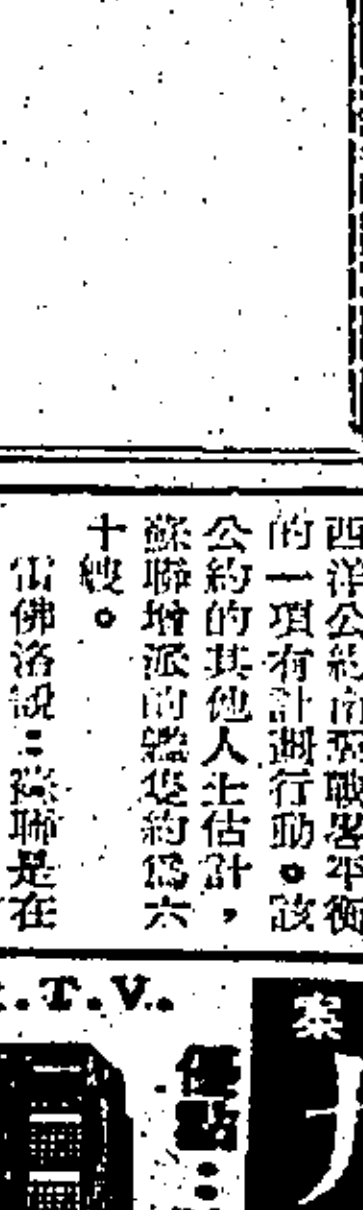 西洋公約南翼戰畧平衡
的一項有計劃行動。該
公約的其他人士估計，
蘇聯增派的艦隻約爲六
十艘。
雷佛洛說：蘇聯是在
.T.V.
優點：
案